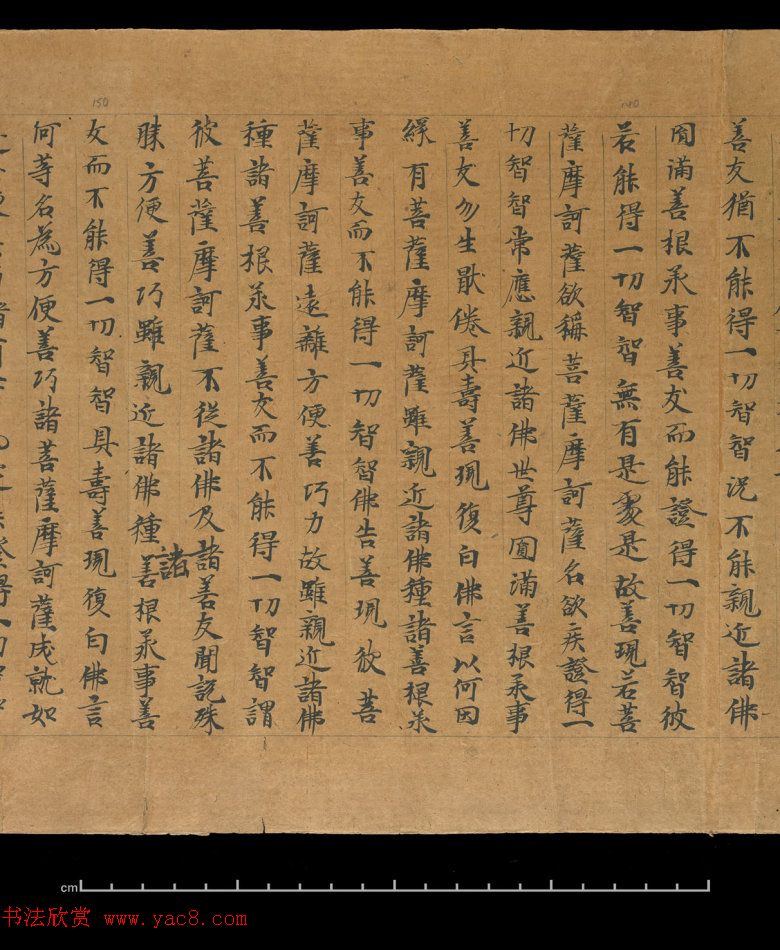 善友猶不能得一切智智况不能親近諸佛
圎滿善根承事善友而能證得一切智智彼
若能得一切智智無有是處是故善現若菩
薩摩訶薩欲稱菩薩摩訶薩名欲疾證得一
切智智常應親近諸佛世尊圎滿善根承事
善友勿生猒倦具壽善現復白佛言以何因
緣有菩薩摩訶薩雖親近諸佛種諸善根承
事善友而不能得一切智智佛告善現彼菩
薩摩訶薩遠離方便善巧力故雖親近諸佛
種諸善根承事善友而不能得一切智智謂
彼菩薩摩訶薩不從諸佛及諸善友聞說殊
殊方便善巧雖親近諸佛種諸善根承事善
友而不能得一切智智具壽善現復白佛言
何等名為方便善巧諸菩薩摩訶薩成就如
150
140
cm
书法欣赏 www.yac8.com